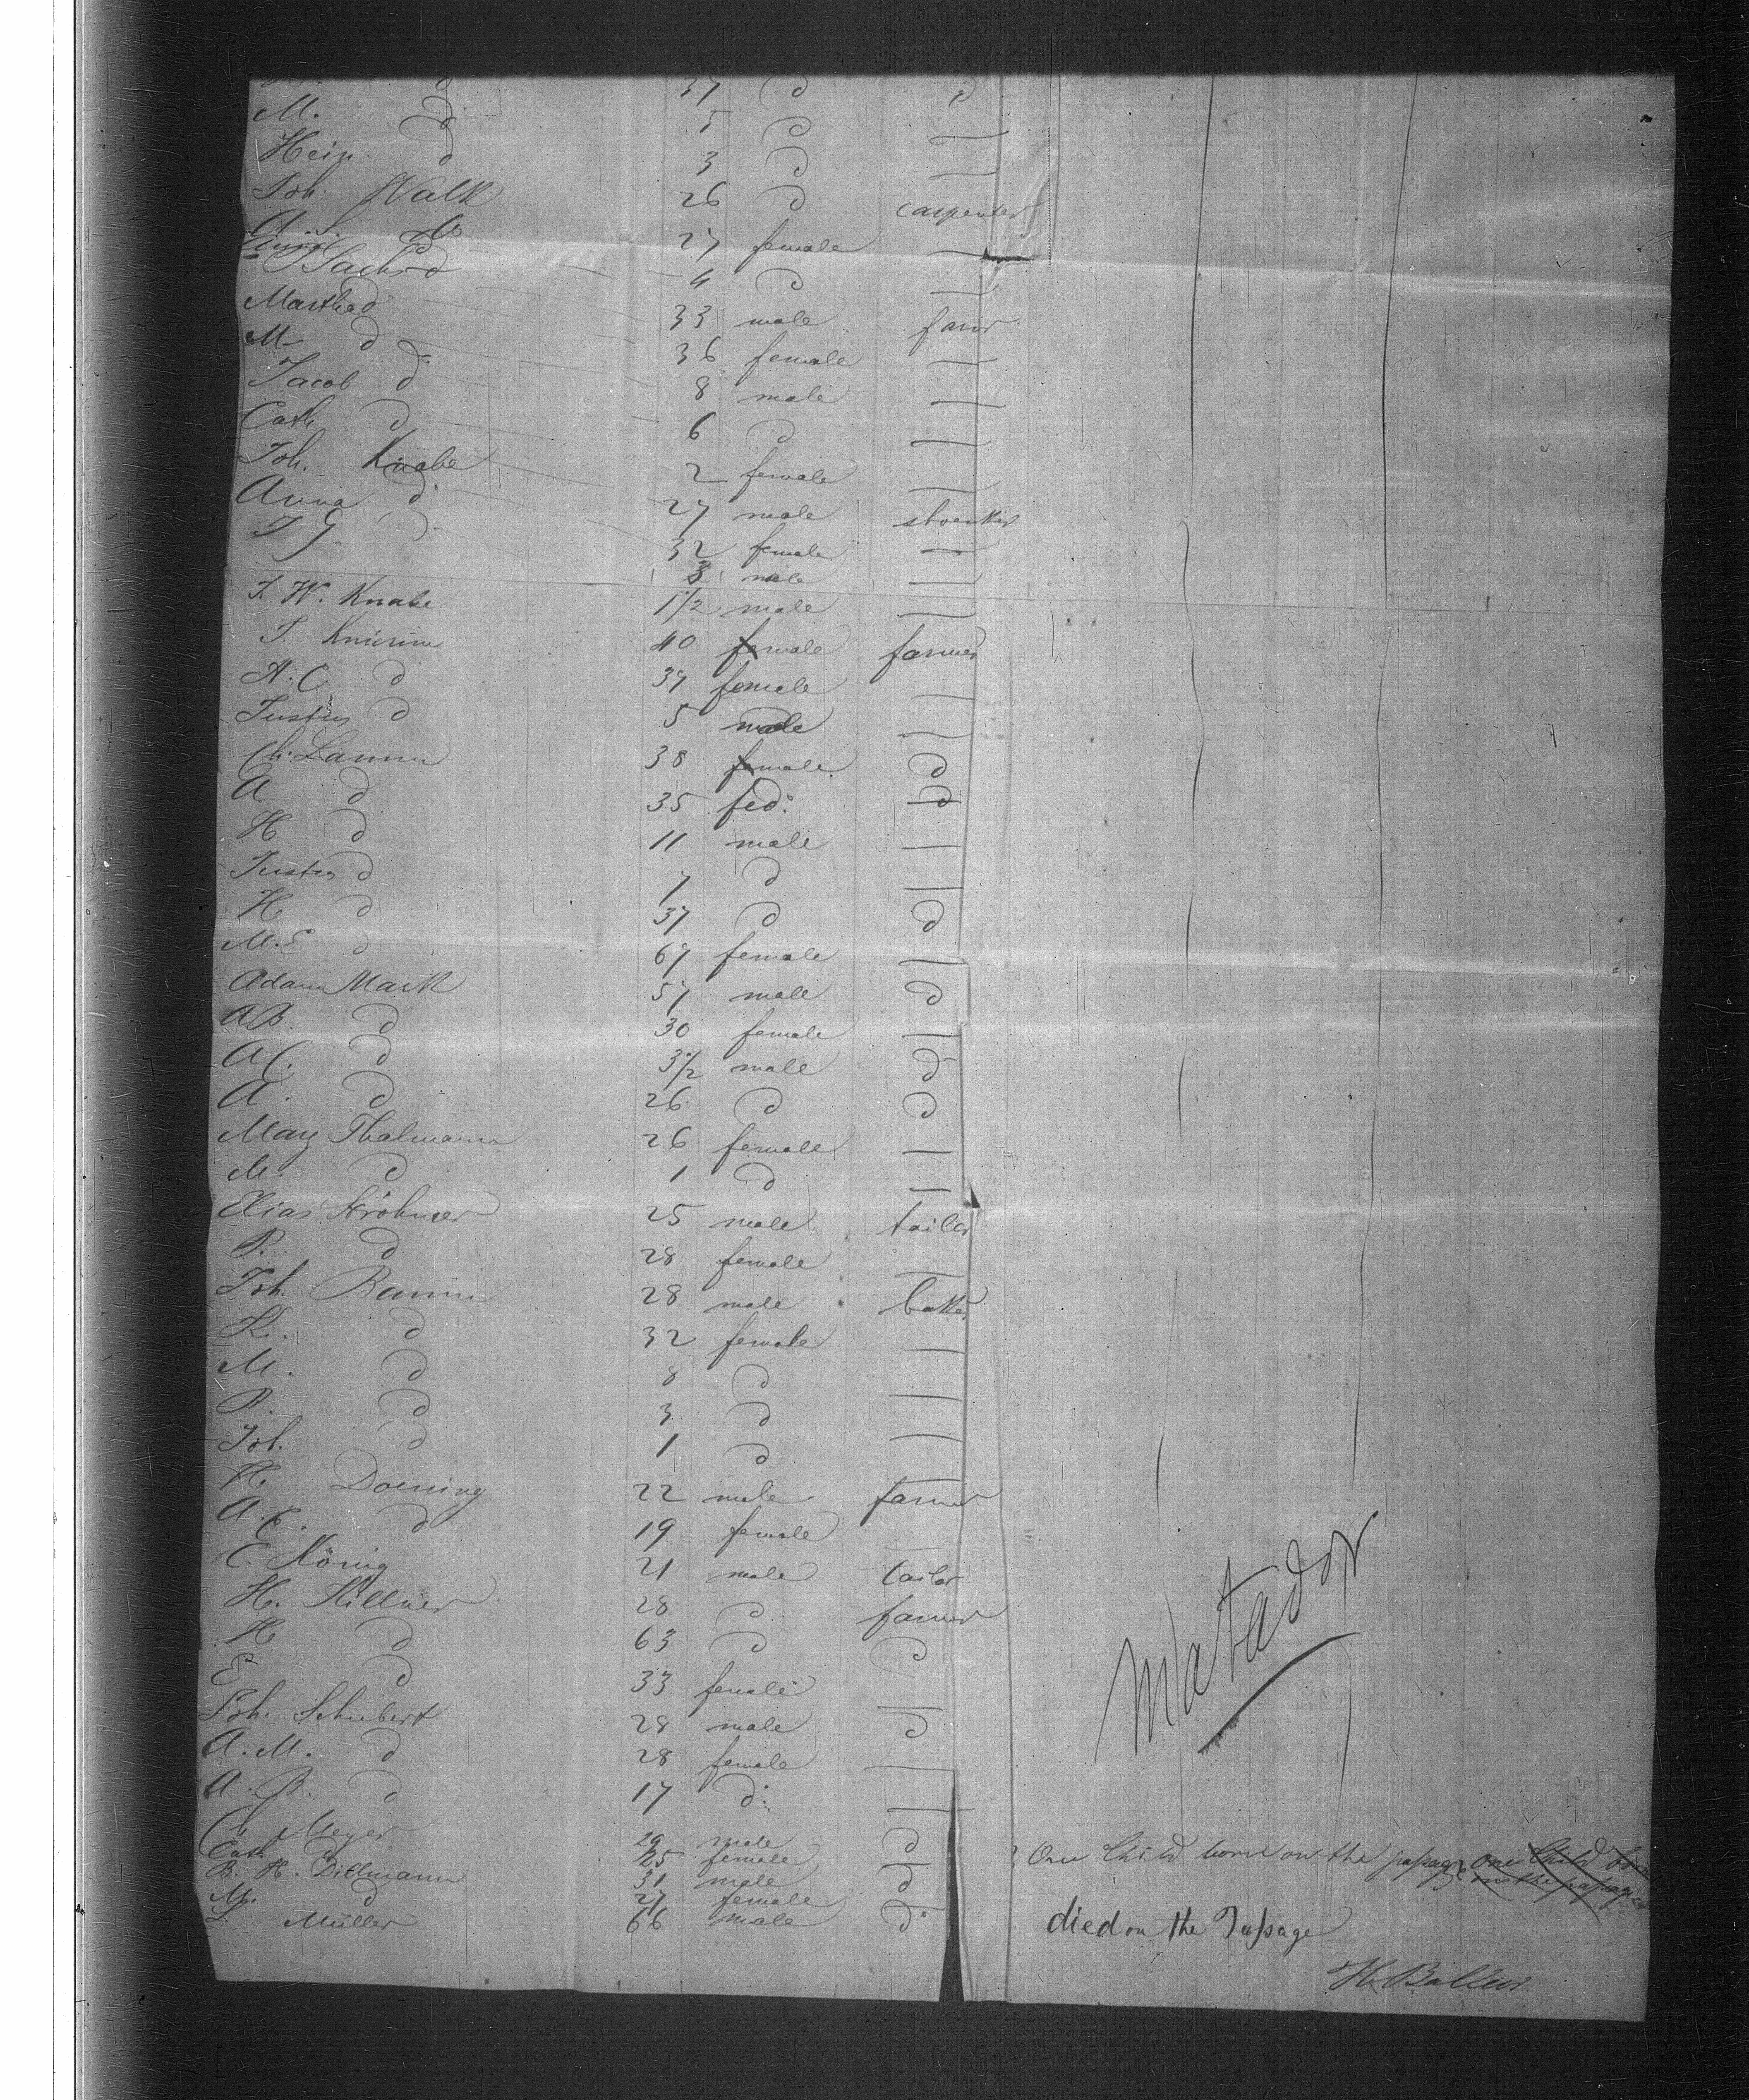 37 d d
M. d 5 d —
Hein. d 3 d —
Joh. Walk 26 d carpenter
A. S. do 27 female —
Anna d 4 d —
J Sachs 33 male farmr
Martha d 36 female —
M d 8 male —
Jacob d 6 d —
Cath d 2 female —
Joh. Knabe 27 male shoemkr
Anna d 32 female —
J G d 3 male —
J. W. Knabe 1 1/2 male —
J. Knierim 40 male farmer
A. C. d 37 female —
Justus d 5 male —
Ch. Lamm 38 male d
A d 35 fed. d
H d 11 male —
Justus d 7 d —
H d 37 d d
M. E d 67 female —
Adam Mark 57 male d
A B. d 30 female —
A C. d 3 1/2 male d
A. d 26 d d
Mary Thalmann 26 female —
M. d 1 d —
Elias Ströhmer 25 male tailor
P. d 28 female —
Joh. Bamm 28 male baker
K. d 32 female —
M. d 8 d —
B. d 3 d —
Joh. d 1 d —
H. Doening 22 male farmer
A. E. d 19 female —
E. König 21 male tailor
H. Hillner 28 d farmer
H d 63 d d
E d 33 female —
Joh. Schubert 28 male d
A. M. d 28 female —
A. B. d 17 d. —
Matador
Ch Meyer 29 male d
Cath 25 female — One Child born on the passage one Child born
on the passage
B. H. Dittmann 31 male d
M. d 27 female —
L. Müller 66 male d. died on the Passage
H. Balleer